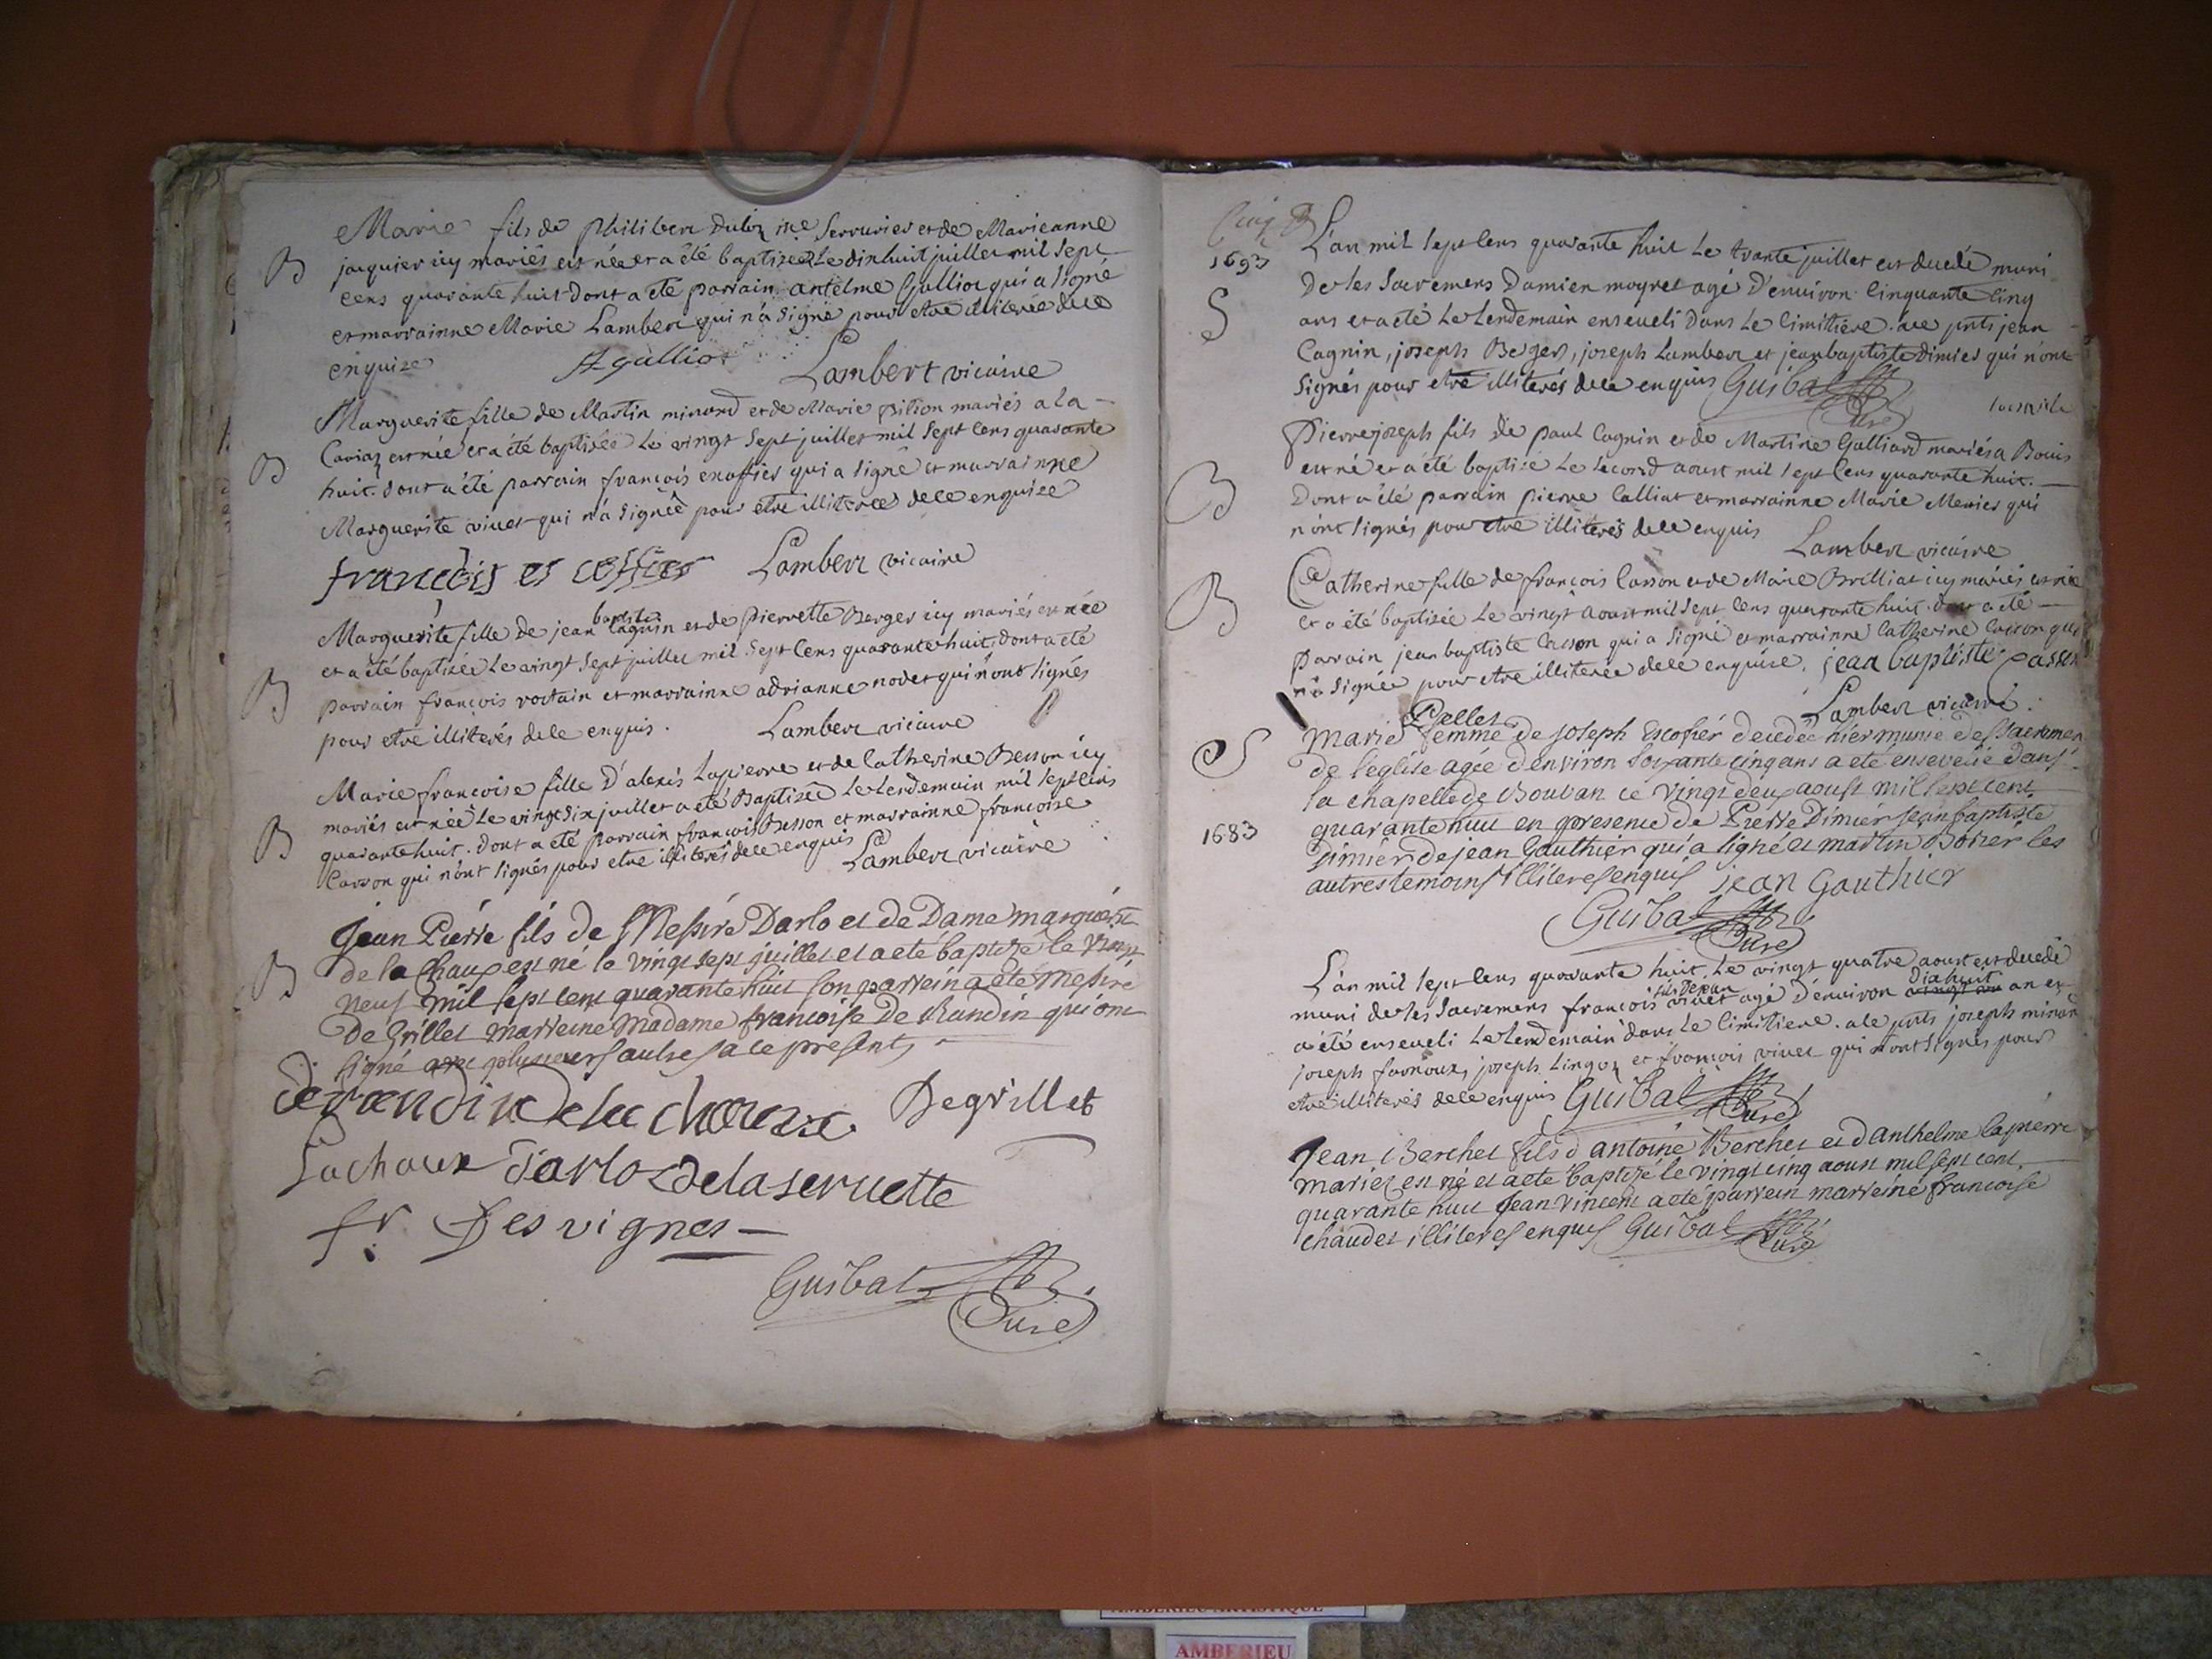 Marie fils de philibert dulin me Serrurier et de Marieanne
B
jacquier icy mariés est née et a été baptizée Le dix huit juillet mil Sept
cens quarante huit dont a été parrain antelme Galliot qui a Signé
et marrainne Marie Lambert qui n'a Signé pour etre illiterée de ce
enquize AGalliot Lambert vicaire
Marguerite fille de Martin minard et de Marie pition mariés a la
B
est née et a été baptisée Le vingt Sept juillet mil Sept Cens quarante
huit. dont a été parrain françois exoffier qui a Signé et marrainne
Marguerite vivet qui n'a Signée pour etre illiterée de ce enquize
francois es coffier Lambert vicaire
baptiste
Marguerite fille de jean Cagnin et de pierrette Berger icy mariés est née
B
et a été baptizée Le vingt Sept juillet mil Sept Cens quarante huit, dont a été
parrain françois et marrainne adrianne nodet qui n'ont Signés
pour etre illiterés de ce enquis. Lambert vicaire
Marie françoise fille D'alexis Lapierre et de Catherine Besson icy
B
mariés est née Le vingt Six juillet a été Baptizée Le Lendemain mil Sept Cens
quarante huit. dont a été parrain françois Besson et marrainne françoise
Casson qui n'ont Signés pour etre illiterés de ce enquis Lambert vicaire
Jean Pierre fils de Messire Darlo et de Dame marguerite
B
de la Chaux est né le vingt sept juillet et a eté baptizé le vingt
neuf mil sept cent quarante huit son parrein a eté Messire
De Grillet marreine Madame francoise De Randin qui ont
signé avec plusieurs aultres a ce presents
derandin Delachaux Degrillet
Lachaux Darloz Delaservette
fr. Desvignes
Guibal Curé
Cinq
1693
S
L'an mil Sept Cens quarante huit Le trante juillet est decedé muni
De ses Sacremens Damien moyret agé D'environ Cinquante Cinq
ans et a eté Le Lendemain enseveli Dans Le Cimitiere. ace pnts jean
Cagnin, joseph Berger, joseph Lambert et jean baptiste Dimier qui n'ont
Signés pour etre illiterés de ce enquis Guibal Curé
Pierre joseph fils de paul Cagnin et de Martine Galliard mariés a Bouis
B
est né et a été baptizé Le Second aoust mil Sept Cens quarante huit.
Dont a été parrain pierre Calliat et marrainne Marie Menies qui
n'ont Signés pour etre illiterés de ce enquis Lambert vicaire
Catherine fille de françois Casson et de Marie Brilliat icy mariés est née
B
et a été baptizée Le vingt aoust mil Sept Cens quarante huit. dont a eté
parrain jean baptiste Casson qui a Signé et marrainne Catherine Casson qui
n'a Signée pour etre illiterée de ce enquise. jean baptiste Casson
Lambert vicaire
Pellet
S
Marie femme de joseph Escofier decedée hier munie des Sacremen
de l'église agée d'environ soixante cinq ans a eté ensevelie dans
la chapelle de Bouvan ce vingt deux aoust mil sept cent
1683
quarante huit en presence de Pierre Dimier jean baptiste
Dimier de jean Gauthier qui a signé et martin les
autres temoins illiteres enquis jean Gauthier
Guibal Curé
L'an mil Sept Cens quarante huit. Le vingt quatre aoust est decedé
muni de Ses Sacremens françois fils Dejean vivet agé D'environ Dixhuit an et
a été enseveli Le Lendemain dans Le Cimitiere. ace pnts joseph minar
joseph farnoux, joseph Lingoz et françois vivet qui n'ont Signés pour
etre illiterés de ce enquis Guibal Curé
Jean Berchet fils d'antoine Berchet et d'anthelme lapierre
mariez est né et a eté baptizé le vingt cinq aoust mil sept cent
quarante huit Jean Vincent a eté parrein marreine francoise
chaudet illiteres enquis Guibal Curé
AMBERIEU ARTISTIQUE
AMBERIEU